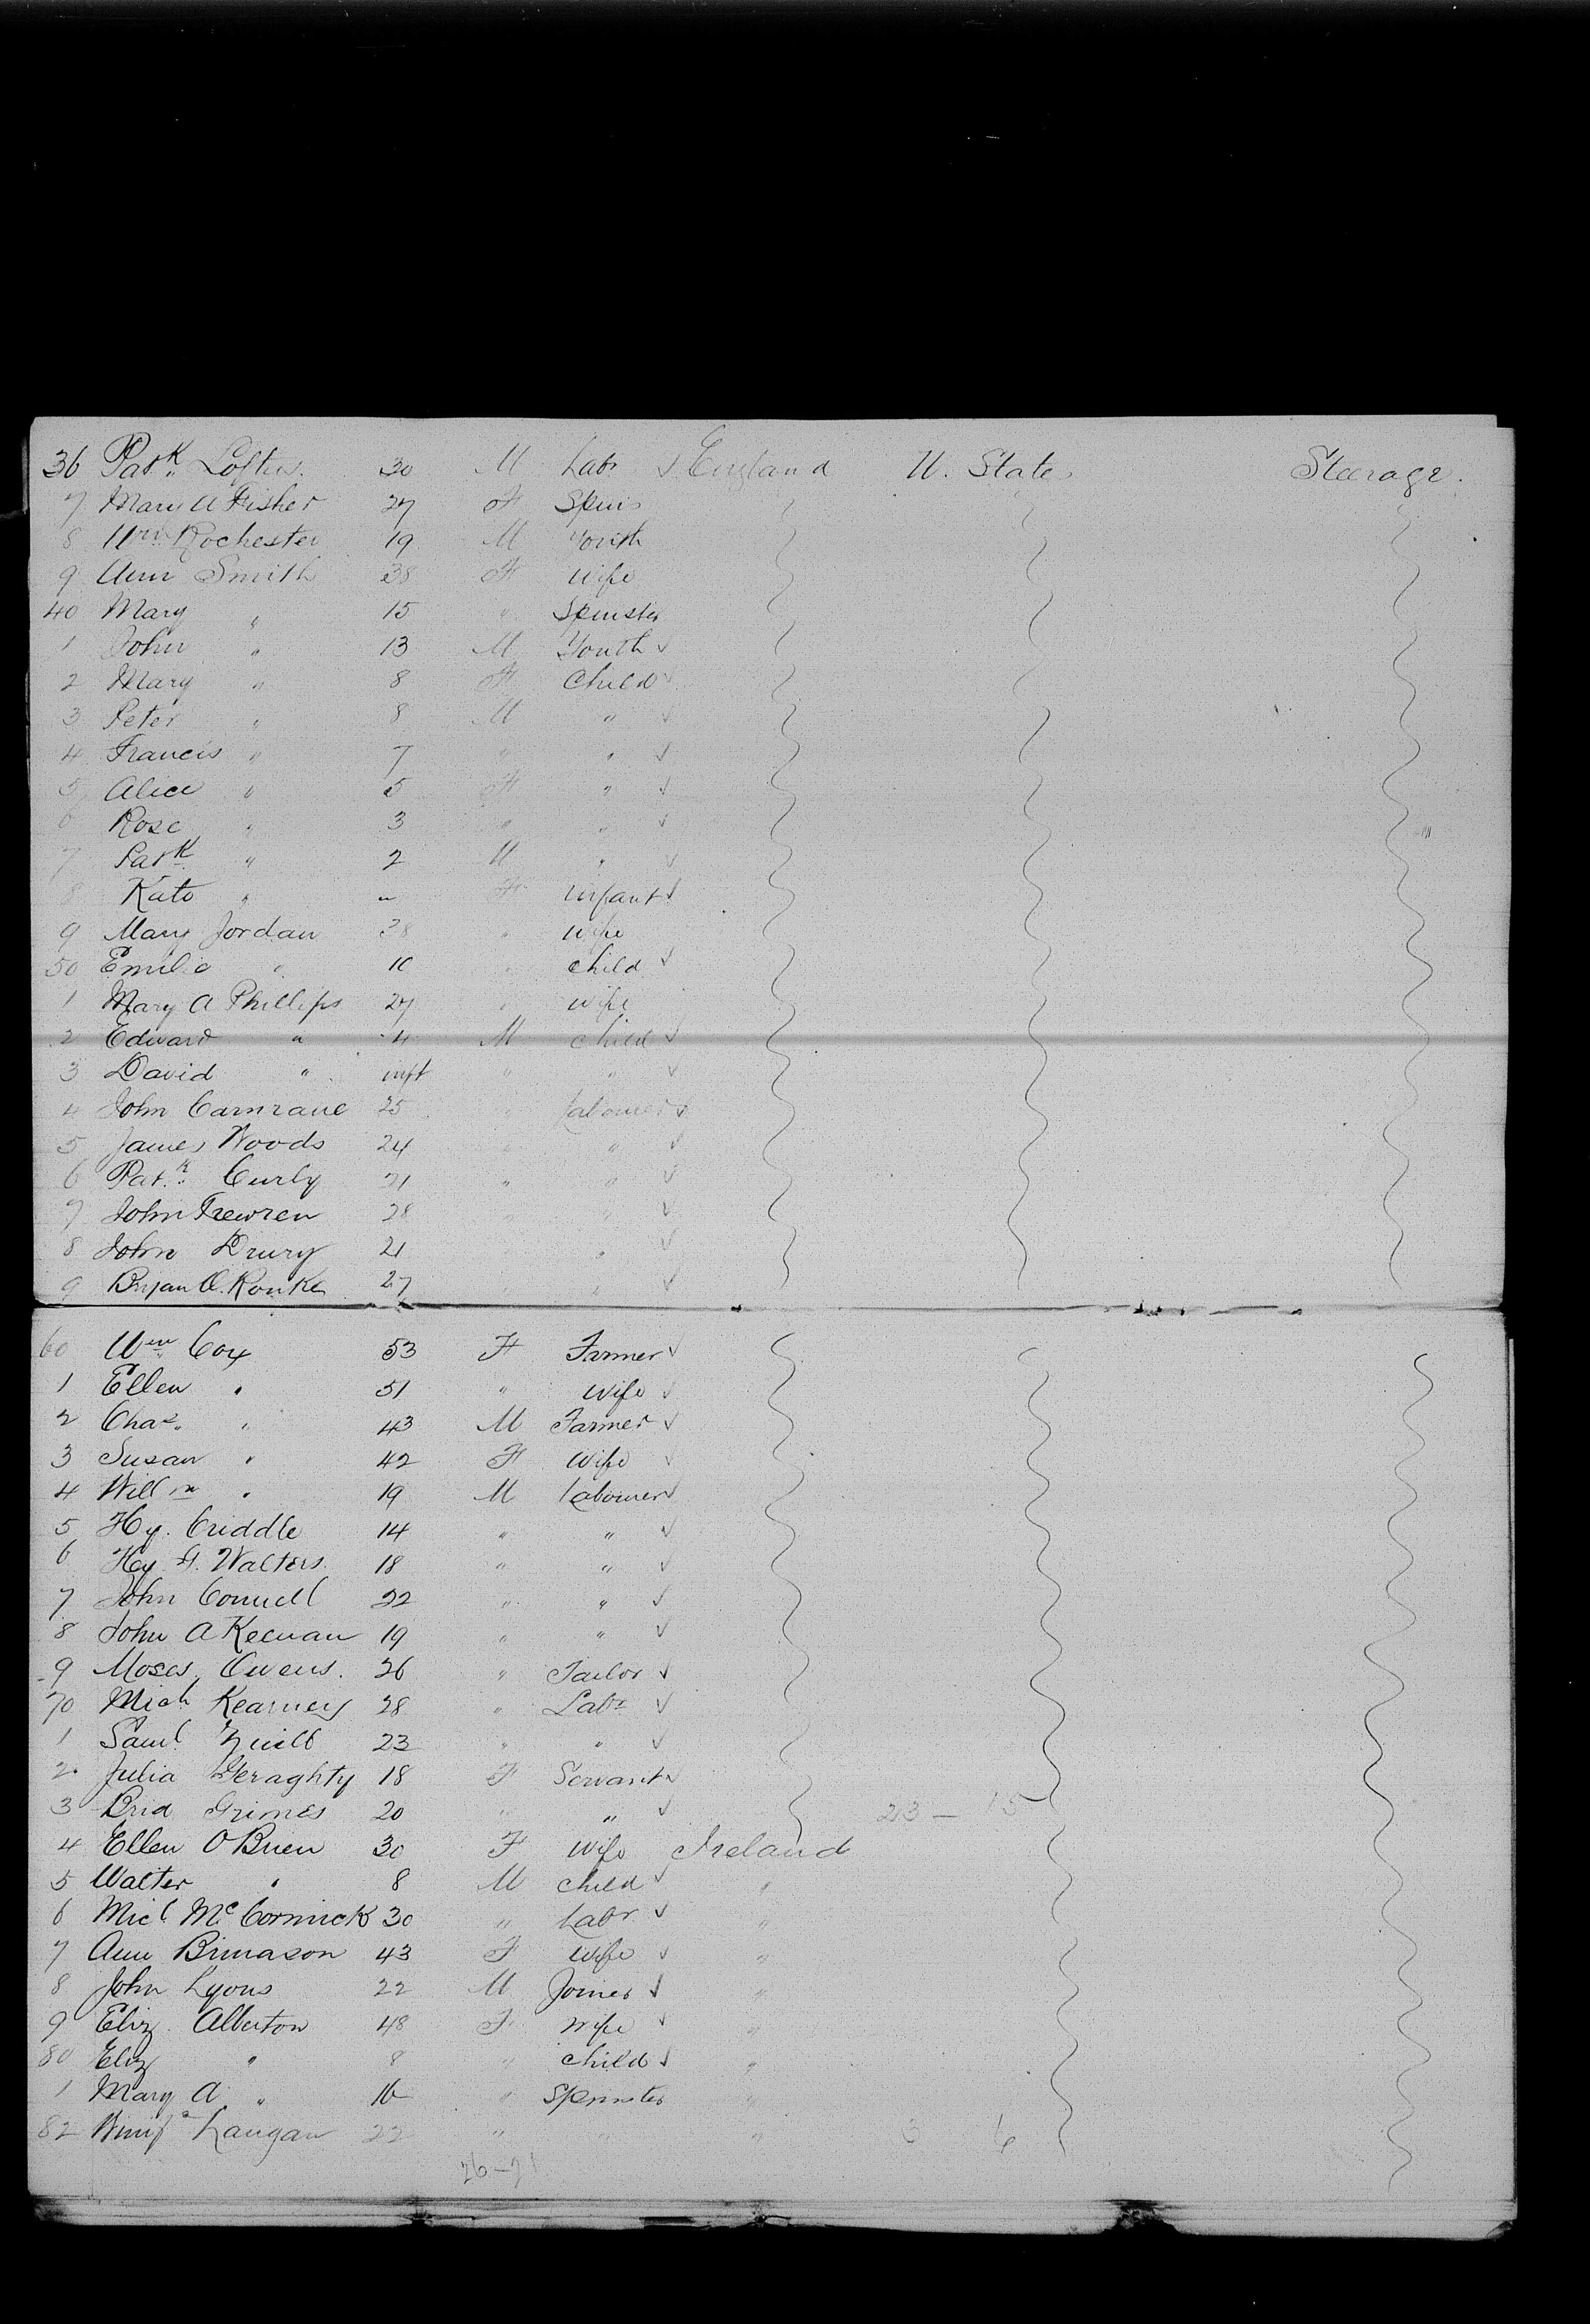 36 Patk Loftus. 30 M Labr England U. States Steerage.
7 Mary A Fisher 27 F Spins
8 Wm Rochester 19 M Youth
9 Ann Smith 38 F Wife
40 Mary " 15 " Spinster
1 John " 13 M Youth
2 Mary " 8 F Child
3 Peter " 8 M "
4 Francis " 7 " "
5 Alice " 5 F "
6 Rose " 3 " "
7 Patk " 2 M "
8 Kate " F Infant
9 Mary Jordan 38 " Wife
50 " 10 " child
1 Mary A Phillips 27 " wife
2 Edward " 4 M child
3 David " inft " "
4 John 25 " Labourer
5 James Woods 24 " "
6 Patk Curly 21 " "
7 John 28 " "
8 John Drury 21 "
9 Bryan O. 27 " "
60 Wm Cox 53 F Farmer
1 Ellen " 51 " Wife
2 Chas. " 43 M Farmer
3 Susan " 42 F Wife
4 Willm " 19 M Labourer
5 Hy. Criddle 14 " "
6 Hy. Walters. 18 " "
7 John Connell 22 " "
8 John A Keenan 19 " "
9 Moses Owens. 26 " Tailor
70 Mich Kearney 28 " Labr
1 Saml 23 " "
2 Julia Geraghty 18 F Servant
3 Brid Grimes 20 " " 23 — 15
4 Ellen O Brien 30 F Wife Ireland
5 Walter " 8 M child "
6 Micl McCormick 30 " Labr "
7 Ann 43 F Wife "
8 John Lyons 22 M Joiner "
9 Eliz Alberton 48 F Wife "
80 Eliz " 8 " child "
1 Mary A " 16 " Spinster "
82 Langan 22 " " " 3 6
26 — 21